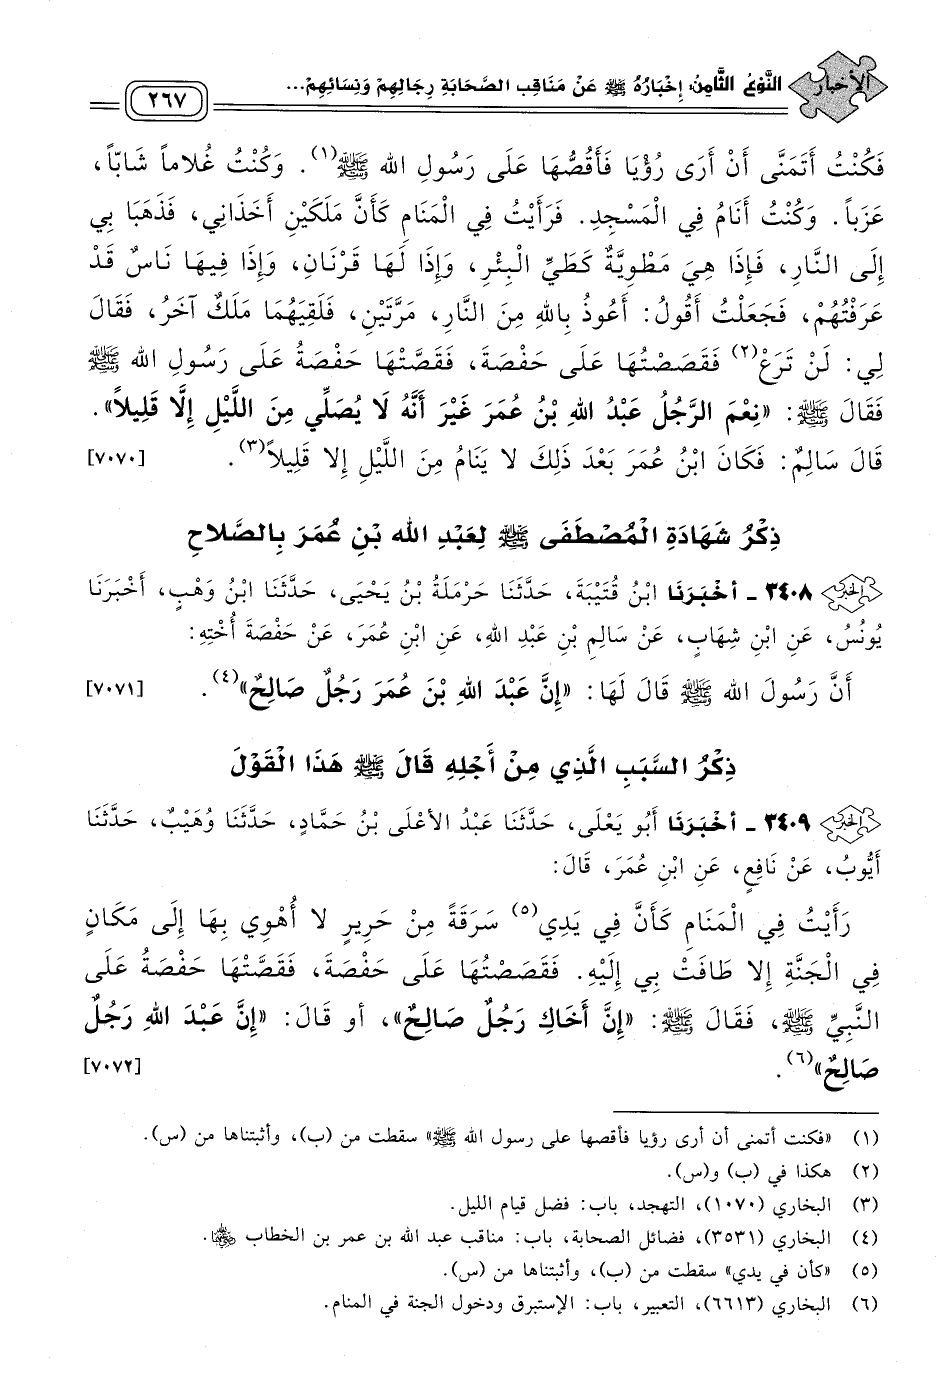 الأخبار
النَّوْعُ الثَّامِنُ: إِخْبَارُهُ ﷺ عَنْ مَنَاقِبِ الصَّحَابَةِ رِجَالِهِمْ وَنِسَائِهِمْ...
٢٦٧
فَكُنْتُ أَتَمَنَّى أَنْ أَرَى رُؤْيَا فَأَقُصُّهَا عَلَى رَسُولِ الله ﷺ(١). وَكُنْتُ غُلاماً شَابّاً،
عَزَباً. وَكُنْتُ أَنَامُ فِي الْمَسْجِدِ. فَرَأَيْتُ فِي الْمَنَامِ كَأَنَّ مَلَكَيْنِ أَخَذَانِي، فَذَهَبَا بِي
إِلَى النَّارِ، فَإِذَا هِيَ مَطْوِيَةٌ كَطَيِّ الْبِئْرِ، وَإِذَا لَهَا قَرْنَانِ، وَإِذَا فِيهَا نَاسٌ قَدْ
عَرَفْتُهُمْ، فَجَعَلْتُ أَقُولُ: أَعُوذُ بِاللهِ مِنَ النَّارِ، مَرَّتَيْنِ، فَلَقِيَهُمَا مَلَكٌ آخَرُ، فَقَالَ
لِي: لَنْ تَرَعْ(٢) فَقَصَصْتُهَا عَلَى حَفْصَةَ، فَقَصَّتْهَا حَفْصَةُ عَلَى رَسُولِ الله ﷺ
فَقَالَ ﷺ: «نِعْمَ الرَّجُلُ عَبْدُ اللهِ بْنُ عُمَرَ غَيْرَ أَنَّهُ لَا يُصَلِّي مِنَ اللَّيْلِ إِلَّا قَلِيلاً».
قَالَ سَالِمٌ: فَكَانَ ابْنُ عُمَرَ بَعْدَ ذَلِكَ لا يَنَامُ مِنَ اللَّيْلِ إِلا قَلِيلاً(٣). [٧٠٧٠]
ذِكْرُ شَهَادَةِ الْمُصْطَفَى ﷺ لِعَبْدِ الله بْنِ عُمَرَ بِالصَّلاحِ
الخبر ٣٤٠٨ ـ أَخْبَرَنَا ابْنُ قُتَيْبَةَ، حَدَّثَنَا حَرْمَلَةُ بْنُ يَحْيَى، حَدَّثَنَا ابْنُ وَهْبٍ، أَخْبَرَنَا
يُونُسُ، عَنِ ابْنِ شِهَابٍ، عَنْ سَالِمِ بْنِ عَبْدِ اللهِ، عَنِ ابْنِ عُمَرَ، عَنْ حَفْصَةَ أُخْتِهِ:
أَنَّ رَسُولَ الله ﷺ قَالَ لَهَا: «إِنَّ عَبْدَ اللهِ بْنَ عُمَرَ رَجُلٌ صَالِحٌ»(٤). [٧٠٧١]
ذِكْرُ السَّبَبِ الَّذِي مِنْ أَجْلِهِ قَالَ ﷺ هَذَا الْقَوْلَ
الخبر ٣٤٠٩ ـ أَخْبَرَنَا أَبُو يَعْلَى، حَدَّثَنَا عَبْدُ الأَعْلَى بْنُ حَمَّادٍ، حَدَّثَنَا وُهَيْبٌ، حَدَّثَنَا
أَيُّوبُ، عَنْ نَافِعٍ، عَنِ ابْنِ عُمَرَ، قَالَ:
رَأَيْتُ فِي الْمَنَامِ كَأَنَّ فِي يَدِي(٥) سَرَقَةً مِنْ حَرِيرٍ لا أُهْوِي بِهَا إِلَى مَكَانٍ
فِي الْجَنَّةِ إِلا طَافَتْ بِي إِلَيْهِ. فَقَصَصْتُهَا عَلَى حَفْصَةَ، فَقَصَّتْهَا حَفْصَةُ عَلَى
النَّبِيِّ ﷺ، فَقَالَ ﷺ: «إِنَّ أَخَاكِ رَجُلٌ صَالِحٌ»، أو قَالَ: «إِنَّ عَبْدَ اللهِ رَجُلٌ
صَالِحٌ»(٦). [٧٠٧٢]
(١) «فكنت أتمنى أن أرى رؤيا فأقصها على رسول الله ﷺ» سقطت من (ب)، وأثبتناها من (س).
(٢) هكذا في (ب) و(س).
(٣) البخاري (١٠٧٠)، التهجد، باب: فضل قيام الليل.
(٤) البخاري (٣٥٣١)، فضائل الصحابة، باب: مناقب عبد الله بن عمر بن الخطاب رضي الله عنهما.
(٥) «كأن في يدي» سقطت من (ب)، وأثبتناها من (س).
(٦) البخاري (٦٦١٣)، التعبير، باب: الإستبرق ودخول الجنة في المنام.